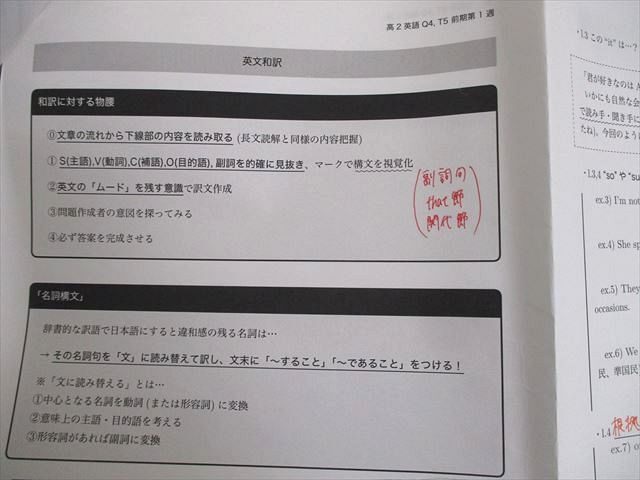 高2英語 Q4, T5 前期第1週
英文和訳
和訳に対する物腰
⓪文章の流れから下線部の内容を読み取る (長文読解と同様の内容把握)
①S(主語),V(動詞),C(補語),O(目的語), 副詞を的確に見抜き、マークで構文を視覚化
②英文の「ムード」を残す意識で訳文作成
③問題作成者の意図を探ってみる
④必ず答案を完成させる
副詞句
that 節
関代 節
「名詞構文」
辞書的な訳語で日本語にすると違和感の残る名詞は…
→ その名詞句を「文」に読み替えて訳し、文末に「〜すること」「〜であること」をつける！
※「文に読み替える」とは…
①中心となる名詞を動詞 (または形容詞) に変換
②意味上の主語・目的語を考える
③形容詞があれば副詞に変換
・1.3 この “it” は…？
「君が好きなのは A
いかにも自然な会
で読み手・聞き手に
たね)。今回のように
・1.3,4 “so” や “su
ex.3) I'm not
ex.4) She sp
ex.5) They
occasions.
ex.6) We
民、準国民
・1.4 根拠
ex.7) o